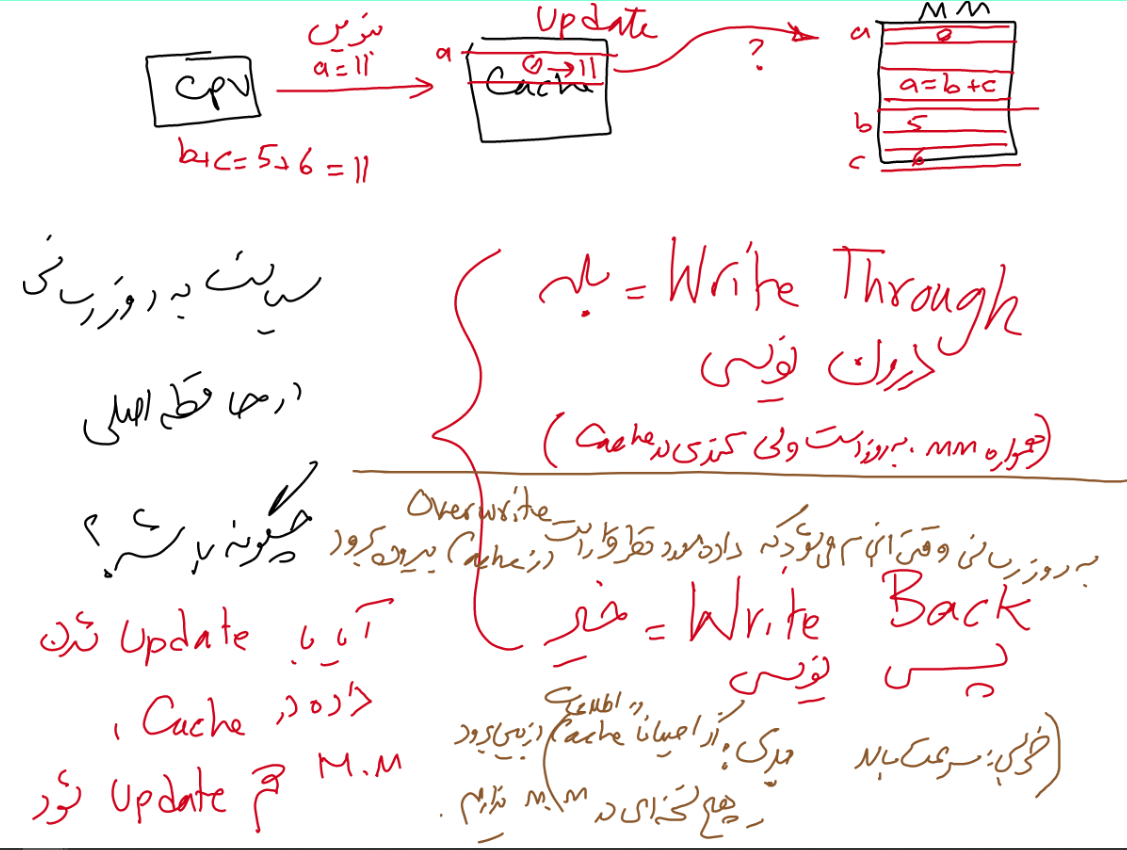 Update
MM
بنویس
a = 11
a
a
0
CPU
0→11
Cache
?
a=b+c
b+c=5+6=11
b
5
c
6
سیاست به روز رسانی
در حافظه اصلی
چگونه باشد؟
آیا با Update شدن
داده در Cache،
M.M هم Update شود
بله = Write Through
درون نویسی
(همواره MM به روز است ولی کندی در Cache)
Overwrite
به روز رسانی وقتی انجام می شود که داده مورد نظر قرار است از Cache بیرون برود
خیر = Write Back
پس نویسی
(خوبی: سرعت بالا
بدی: اگر احیانا اطلاعات در Cache از بین برود
هیچ نسخه ای در M.M نداریم.)